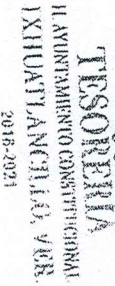 TESORERIA
H. AYUNTAMIENTO CONSTITUCIONAL
IXHUATLANCILLO, VER.
2018-2021